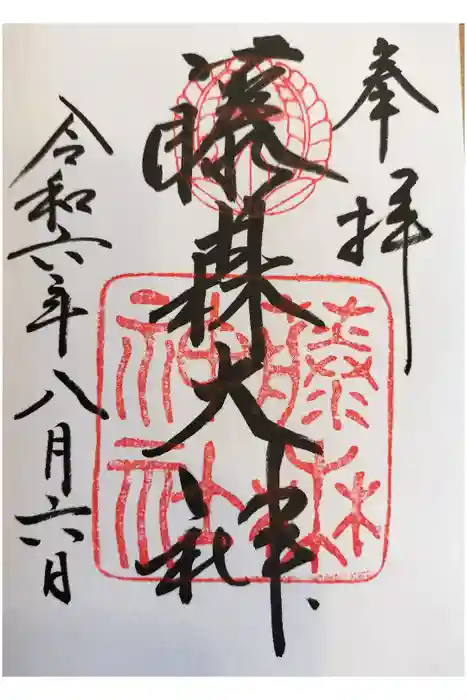 奉拝
藤森大神
藤森
神社
令和六年八月六日